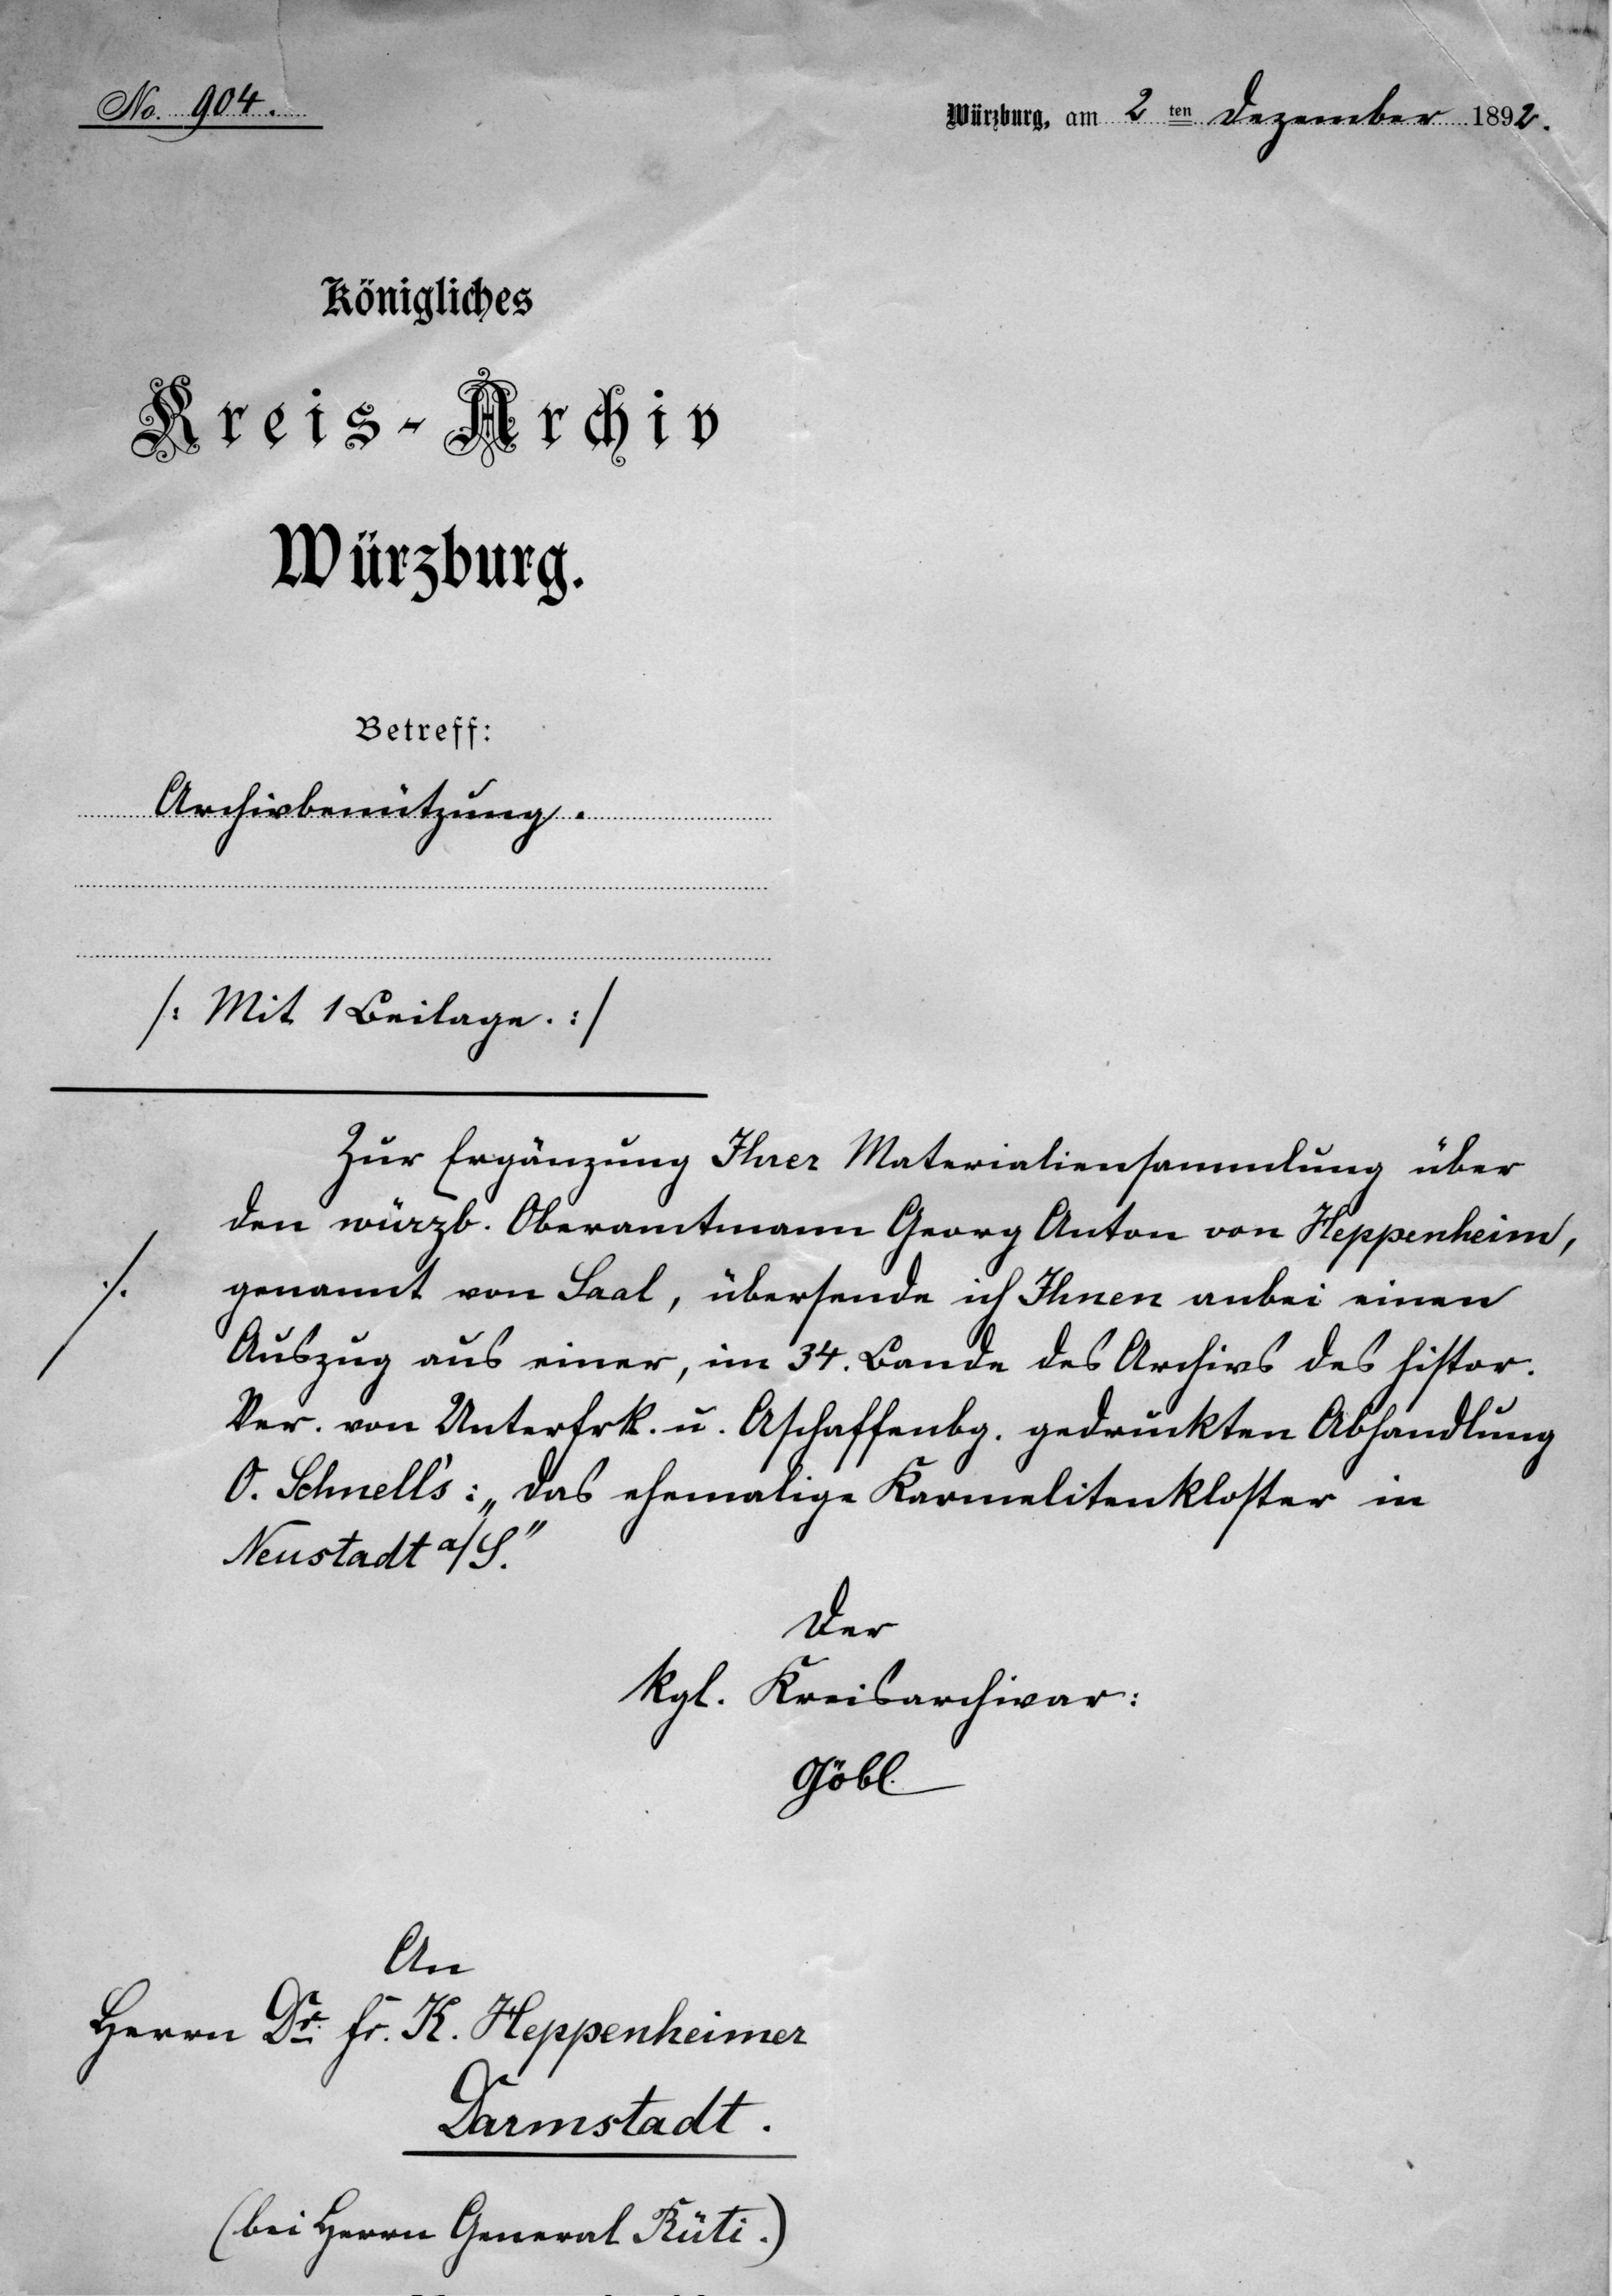 No. 904.
Würzburg, am 2ten Dezember 1892.
Königliches
Kreis-Archiv
Würzburg.
Betreff:
Archivbenützung.
/: Mit 1 Beilage. :/
Zur Ergänzung Ihrer Materialiensammlung über
den würzb. Oberamtmann Georg Anton von Heppenheim,
./. genannt von Saal, übersende ich Ihnen anbei einen
Auszug aus einer, im 34. Bande des Archivs des histor.
Ver. von Unterfrk. u. Aschaffenbg. gedruckten Abhandlung
O. Schnell's: „Das ehemalige Karmelitenkloster in
Neustadt a/S."
Der
kgl. Kreisarchivar:
Göbl
An
Herrn Dr. Fr. K. Heppenheimer
Darmstadt.
(bei Herrn General Küti.)